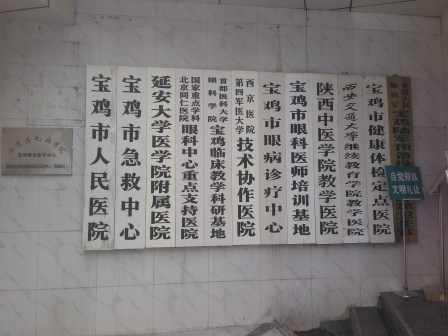 宝鸡市人民医院
宝鸡市急救中心
延安大学医学院附属医院
国家重点学科
北京同仁医院
眼科中心重点支持医院
首都医科大学
眼科学院
宝鸡临床教学科研基地
西京医院
第四军医大学
技术协作医院
宝鸡市眼病诊疗中心
宝鸡市眼科医师培训基地
陕西中医学院教学医院
西安交通大学继续教育学院教学医院
宝鸡市健康体检定点医院
自觉排队
文明礼让